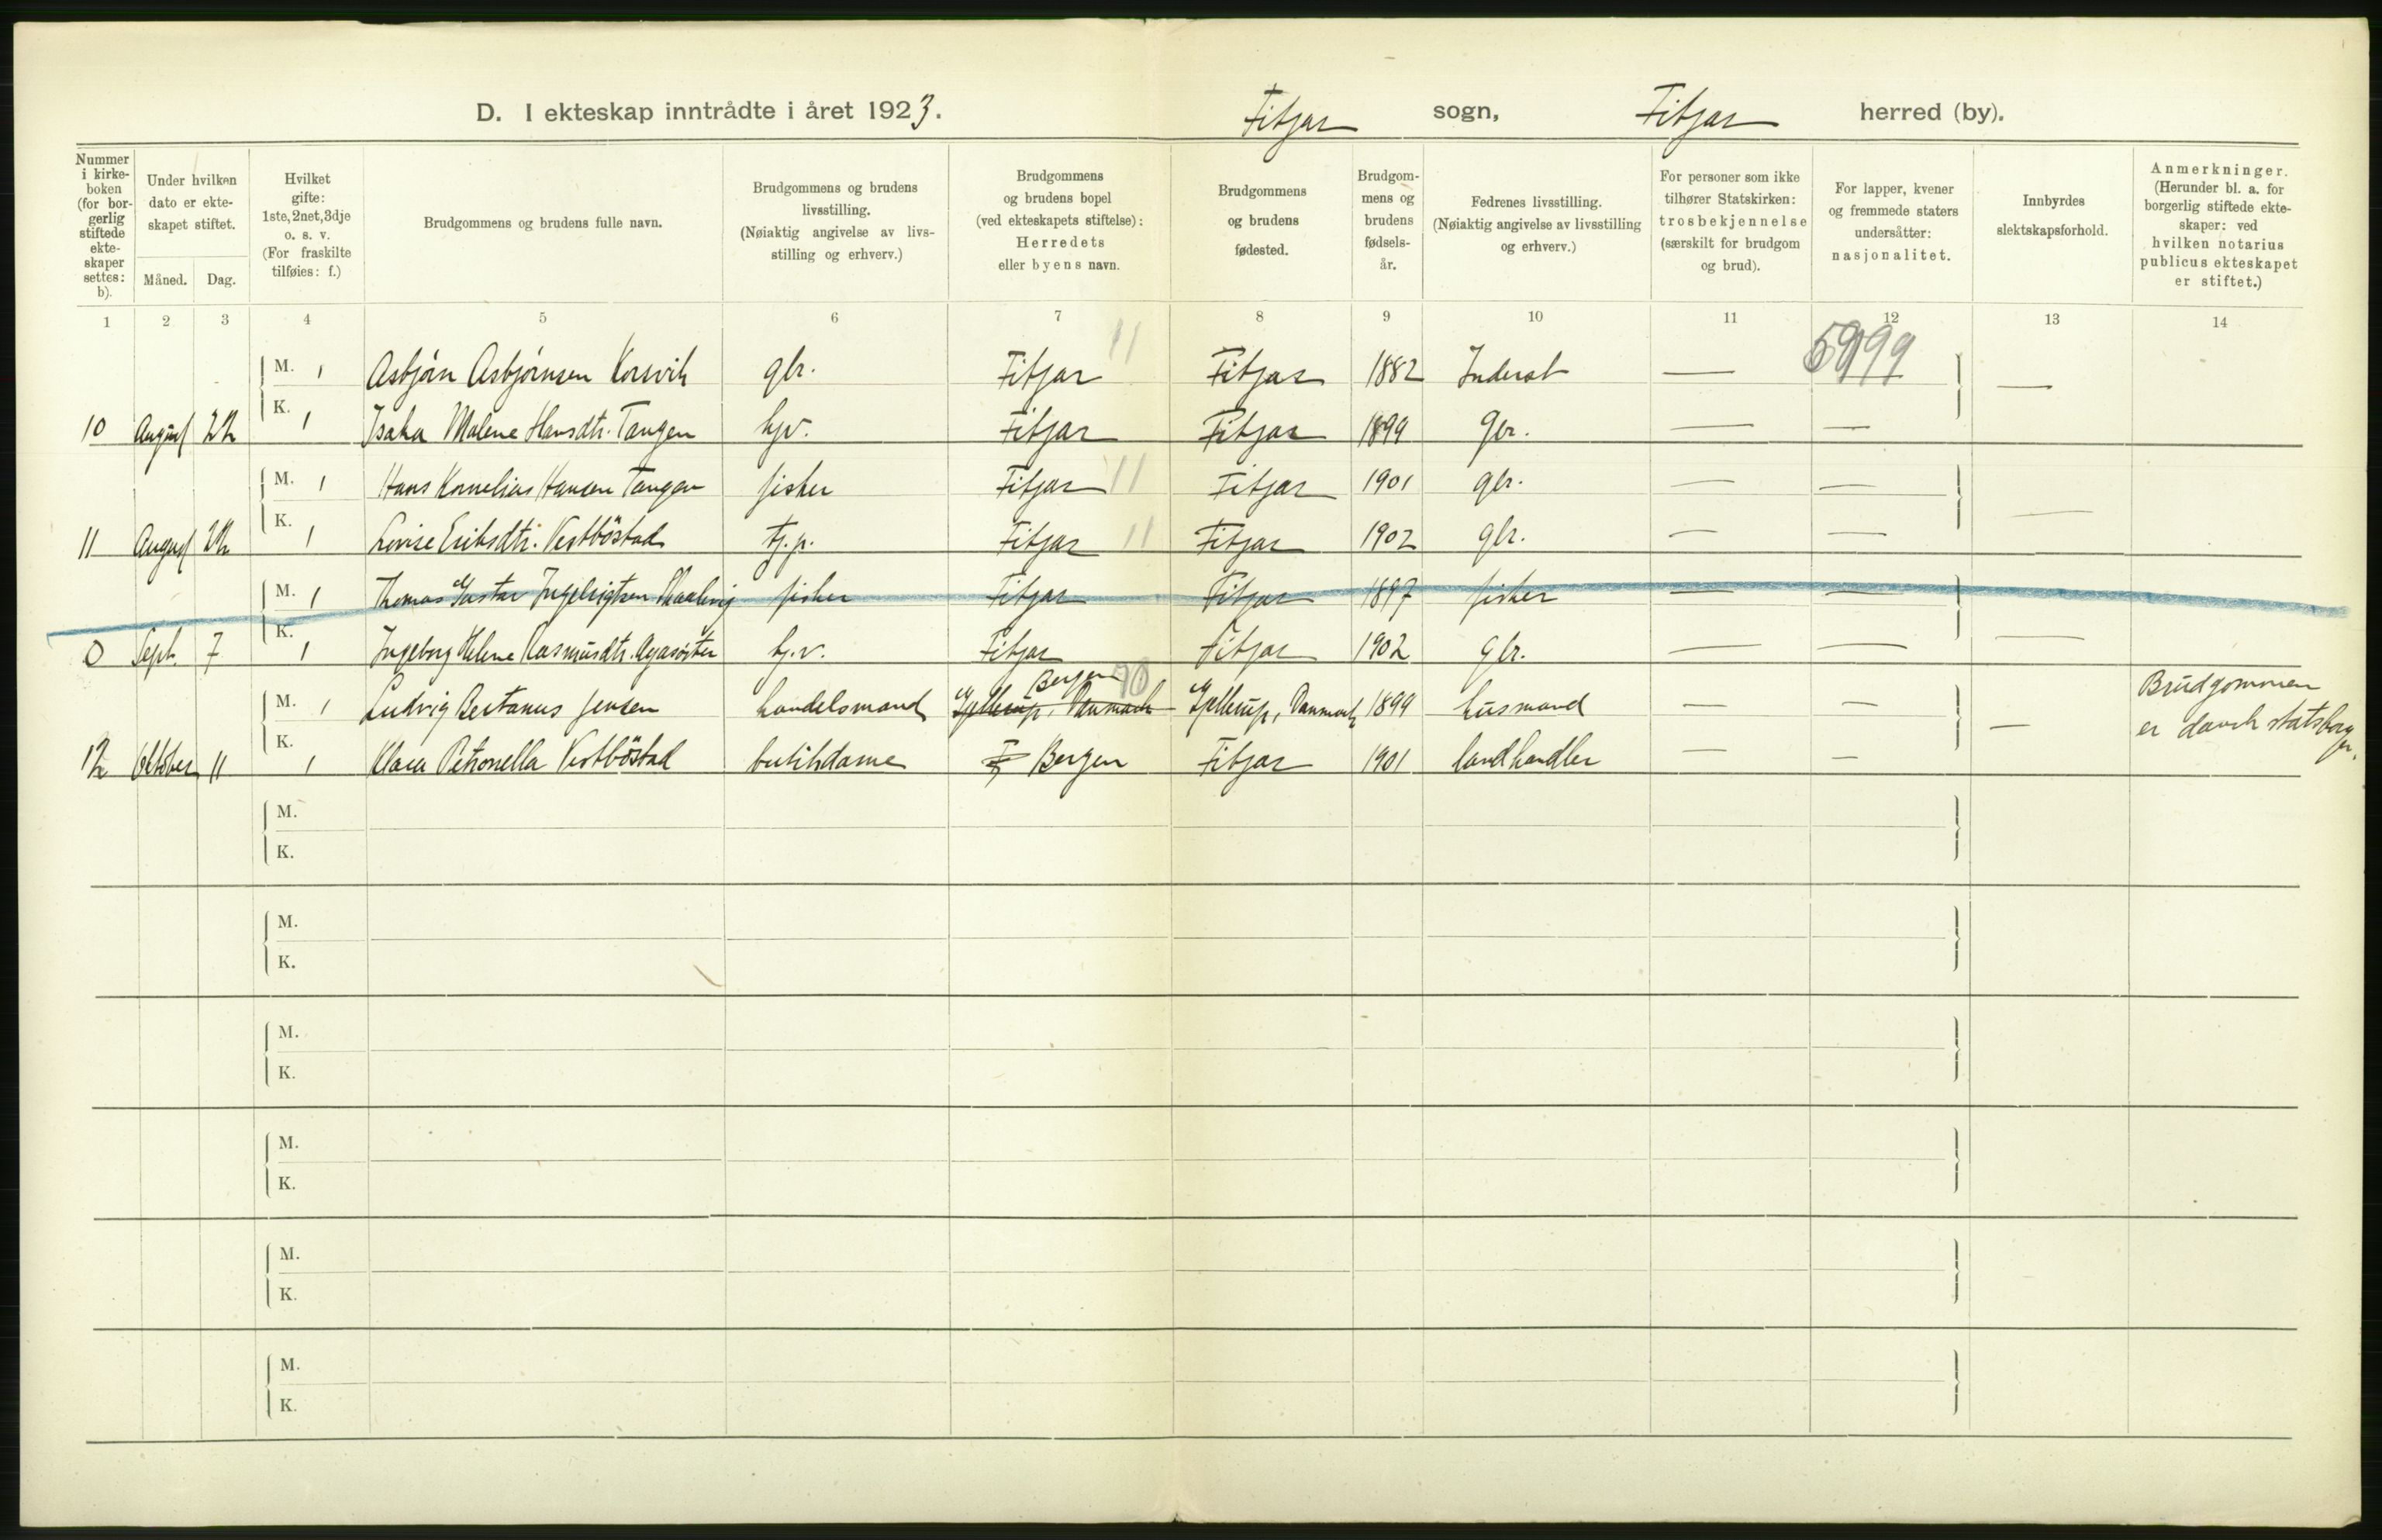 D. I ekteskap inntrådte i året 1923. Fitjar sogn, Fitjar herred (by).
Nummer
i kirke-
boken
(for bor-
gerlig
stiftede
ekte-
skaper
settes:
b).
Under hvilken
dato er ekte-
skapet stiftet.
Måned. Dag.
Hvilket
gifte:
1ste, 2net, 3dje
o. s. v.
(For fraskilte
tilføies: f.)
Brudgommens og brudens fulle navn.
Brudgommens og brudens
livsstilling.
(Nøiaktig angivelse av livs-
stilling og erhverv.)
Brudgommens
og brudens bopel
(ved ekteskapets stiftelse):
Herredets
eller byens navn.
Brudgommens
og brudens
fødested.
Brudgom-
mens og
brudens
fødsels-
år.
Fedrenes livsstilling.
(Nøiaktig angivelse av livsstilling
og erhverv.)
For personer som ikke
tilhører Statskirken:
trosbekjennelse
(særskilt for brudgom
og brud).
For lapper, kvener
og fremmede staters
undersåtter:
nasjonalitet.
Innbyrdes
slektskapsforhold.
Anmerkninger.
(Herunder bl. a. for
borgerlig stiftede ekte-
skaper: ved
hvilken notarius
publicus ekteskapet
er stiftet.)
1 2 3 4 5 6 7 8 9 10 11 12 13 14
M. 1 Asbjörn Asbjörnsen Korsvik gbr. Fitjar 11 Fitjar 1882 Inderst — 5999 —
10 August 22 K. 1 Malene Hansdtr. Tangen hjv. Fitjar Fitjar 1899 Gbr. — —
M. 1 Hans Kornelius Hansen Tangen fisker Fitjar 11 Fitjar 1901 gbr. — — —
11 August 22 K. 1 Lovise Eriksdtr. Vestböstad tj.p. Fitjar 11 Fitjar 1902 gbr. — —
M. 1 Thomas Gustav fisker Fitjar Fitjar 1897 fisker — — —
0 Sept. 7 K. 1 Ingeborg Helene Rasmusdtr. Agasöster hj.v. Fitjar Fitjar 1902 gbr. — —
Bergen 70
M. 1 Ludvig Bertanus Jensen handelsmand Gjellerup, Danmark Gjellerup, Danmark 1899 husmand — — — Brudgommen
er dansk statsborger.
12 Oktober 11 K. 1 Klara Petronella Vestböstad butikdame F Bergen Fitjar 1901 landhandler — —
M.
K.
M.
K.
M.
K.
M.
K.
M.
K.
M.
K.